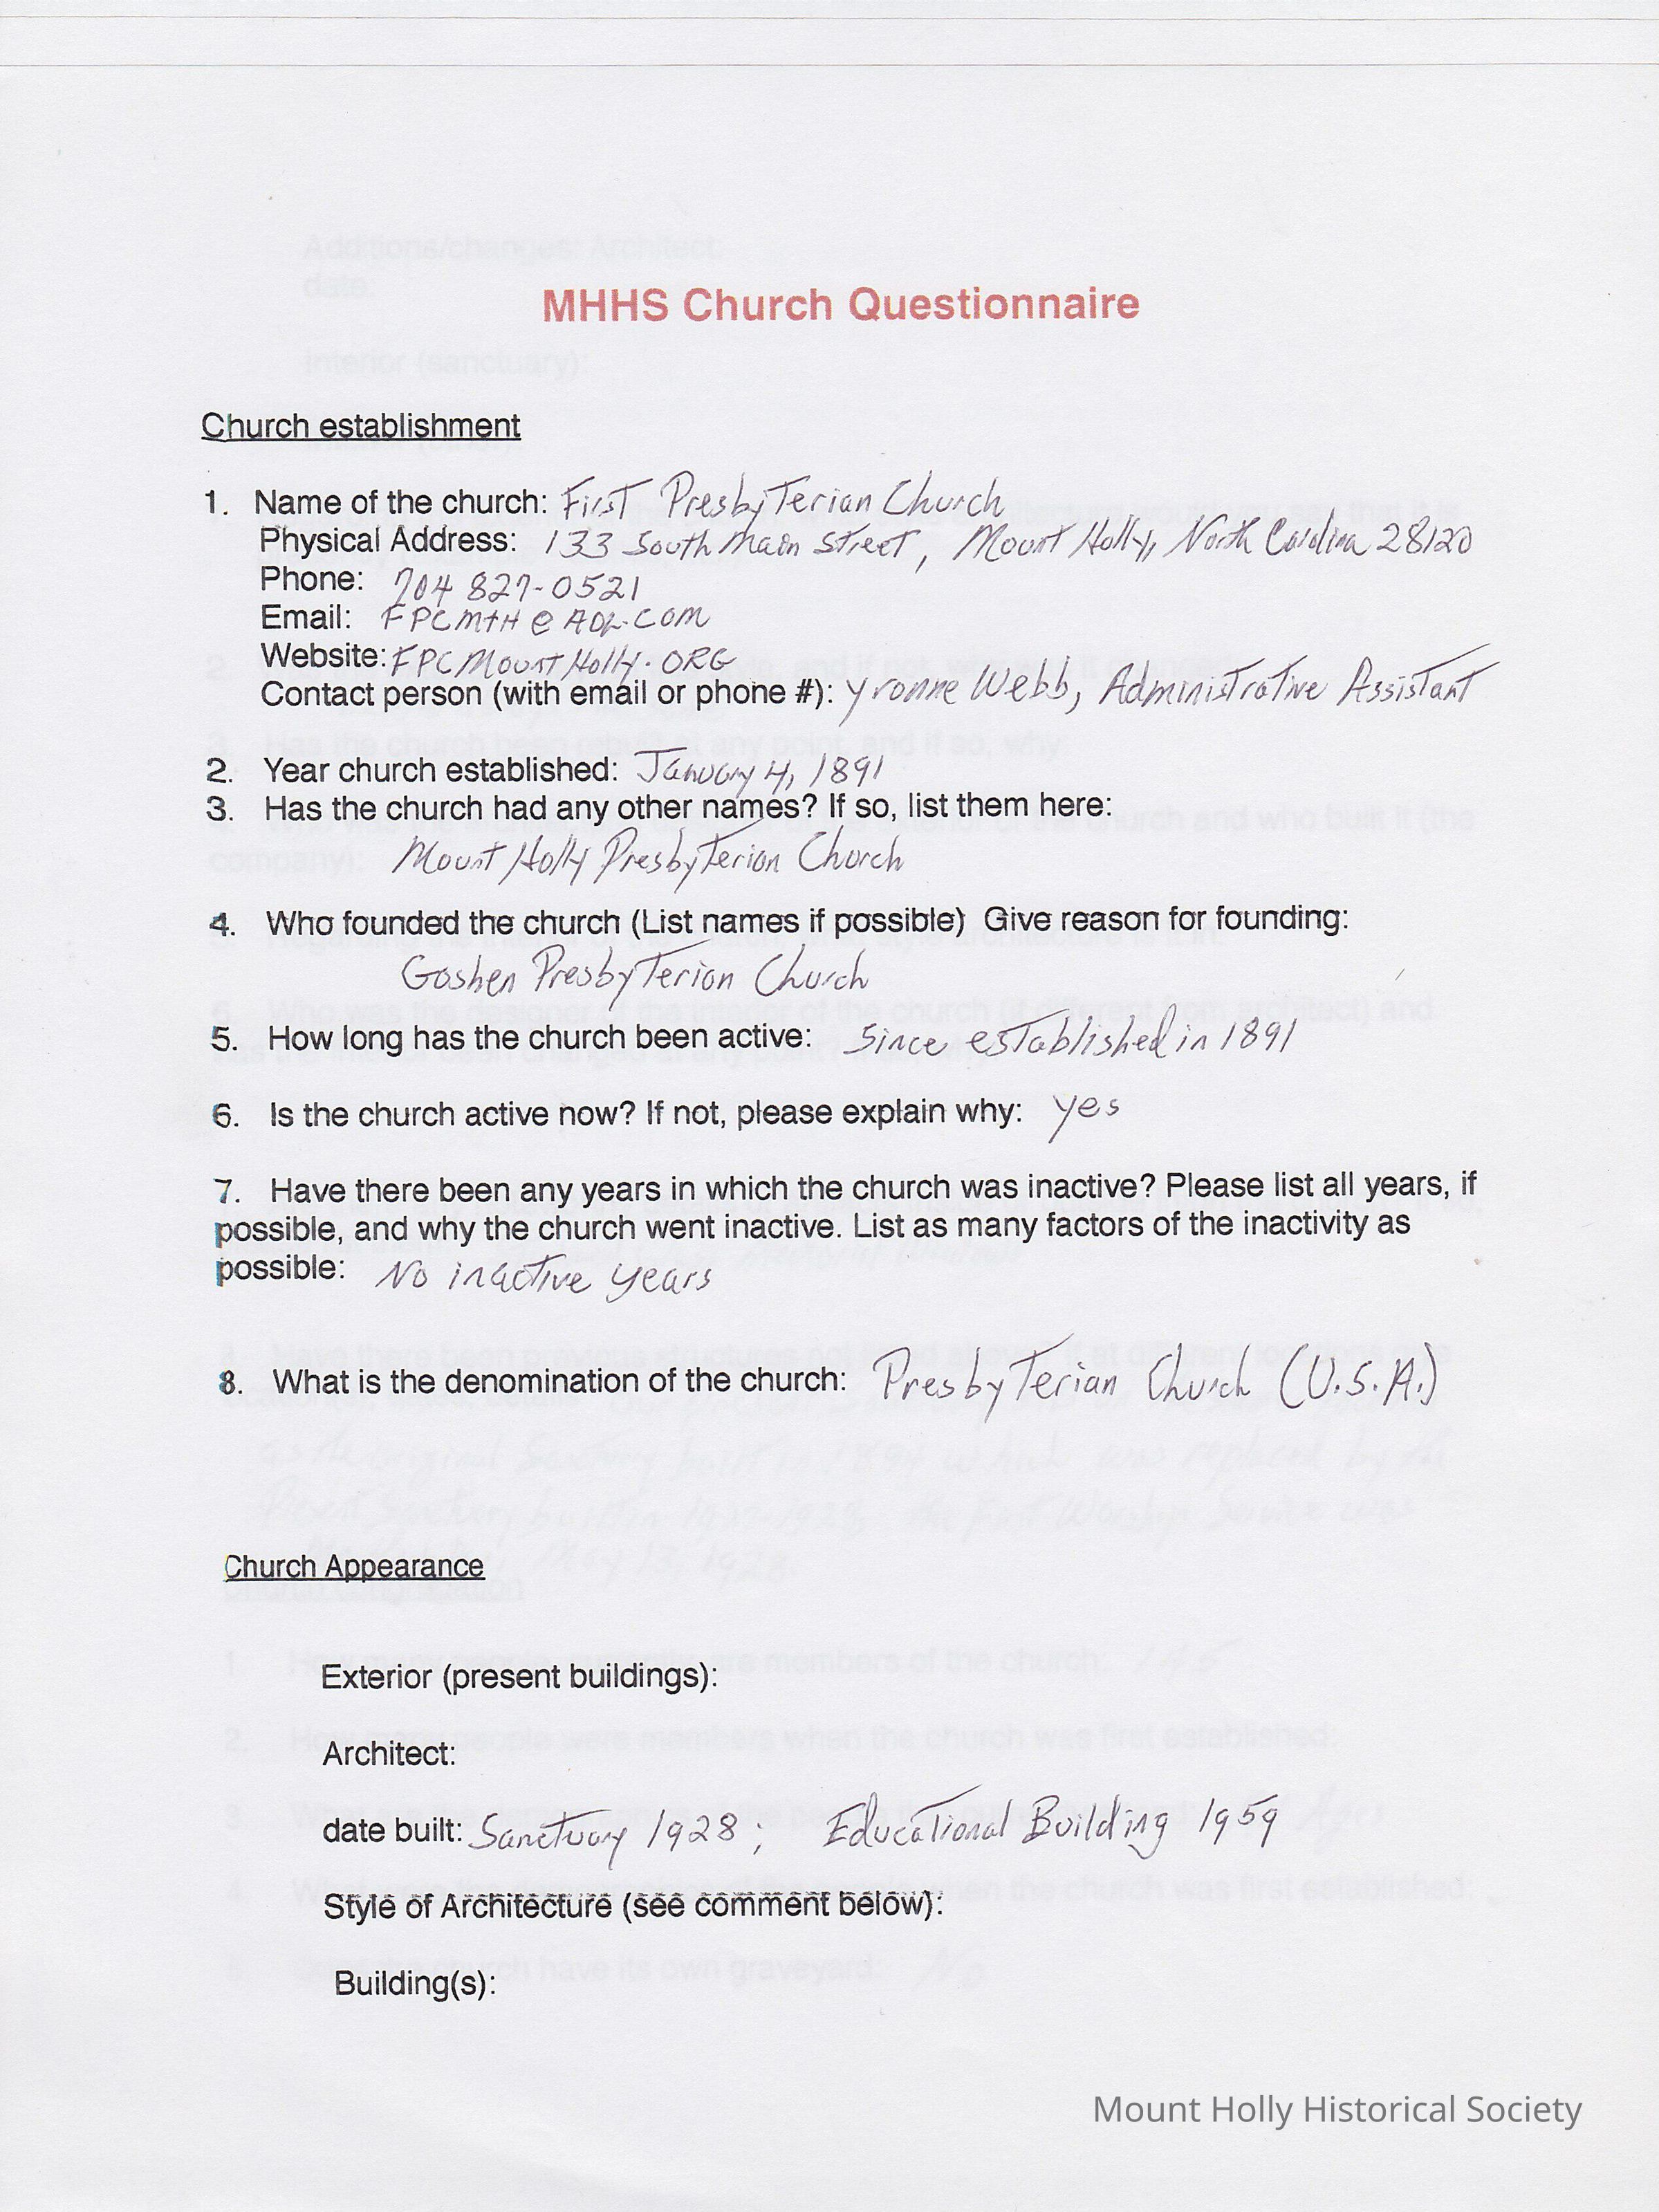 MHHS Church Questionnaire
Church establishment
1. Name of the church: First Presbyterian Church
Physical Address: 133 South Main Street, Mount Holly, North Carolina 28120
Phone: 704 827-0521
Email: FPCMTH@AOL.COM
Website: FPCMountHolly.ORG
Contact person (with email or phone #): Yvonne Webb, Administrative Assistant
2. Year church established: January 4, 1891
3. Has the church had any other names? If so, list them here:
Mount Holly Presbyterian Church
4. Who founded the church (List names if possible) Give reason for founding:
Goshen Presbyterian Church
5. How long has the church been active: Since established in 1891
6. Is the church active now? If not, please explain why: yes
7. Have there been any years in which the church was inactive? Please list all years, if
possible, and why the church went inactive. List as many factors of the inactivity as
possible: No inactive years
8. What is the denomination of the church: Presbyterian Church (U.S.A.)
Church Appearance
Exterior (present buildings):
Architect:
date built: Sanctuary 1928; Educational Building 1959
Style of Architecture (see comment below):
Building(s):
Mount Holly Historical Society